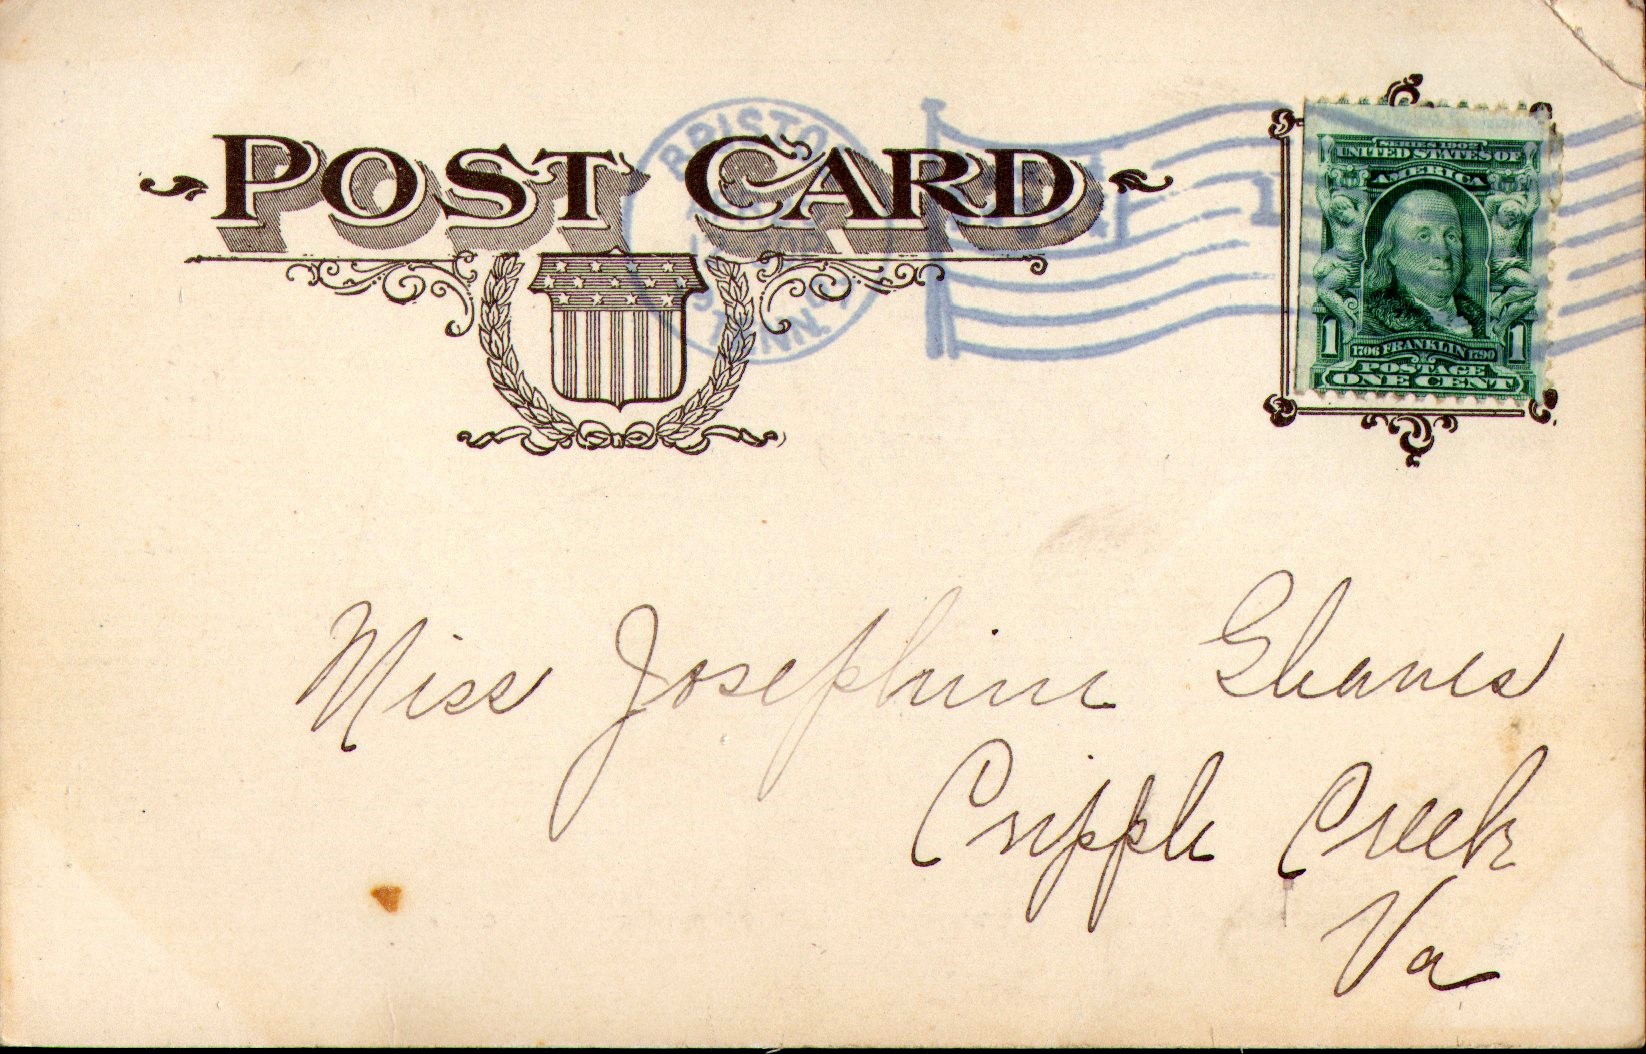 POST CARD
BRISTOL
TENN.
SERIES 1902
UNITED STATES OF
AMERICA
1 1706 FRANKLIN 1790 1
POSTAGE
ONE CENT
Miss Josephine Gleaves
Cripple Creek
Va